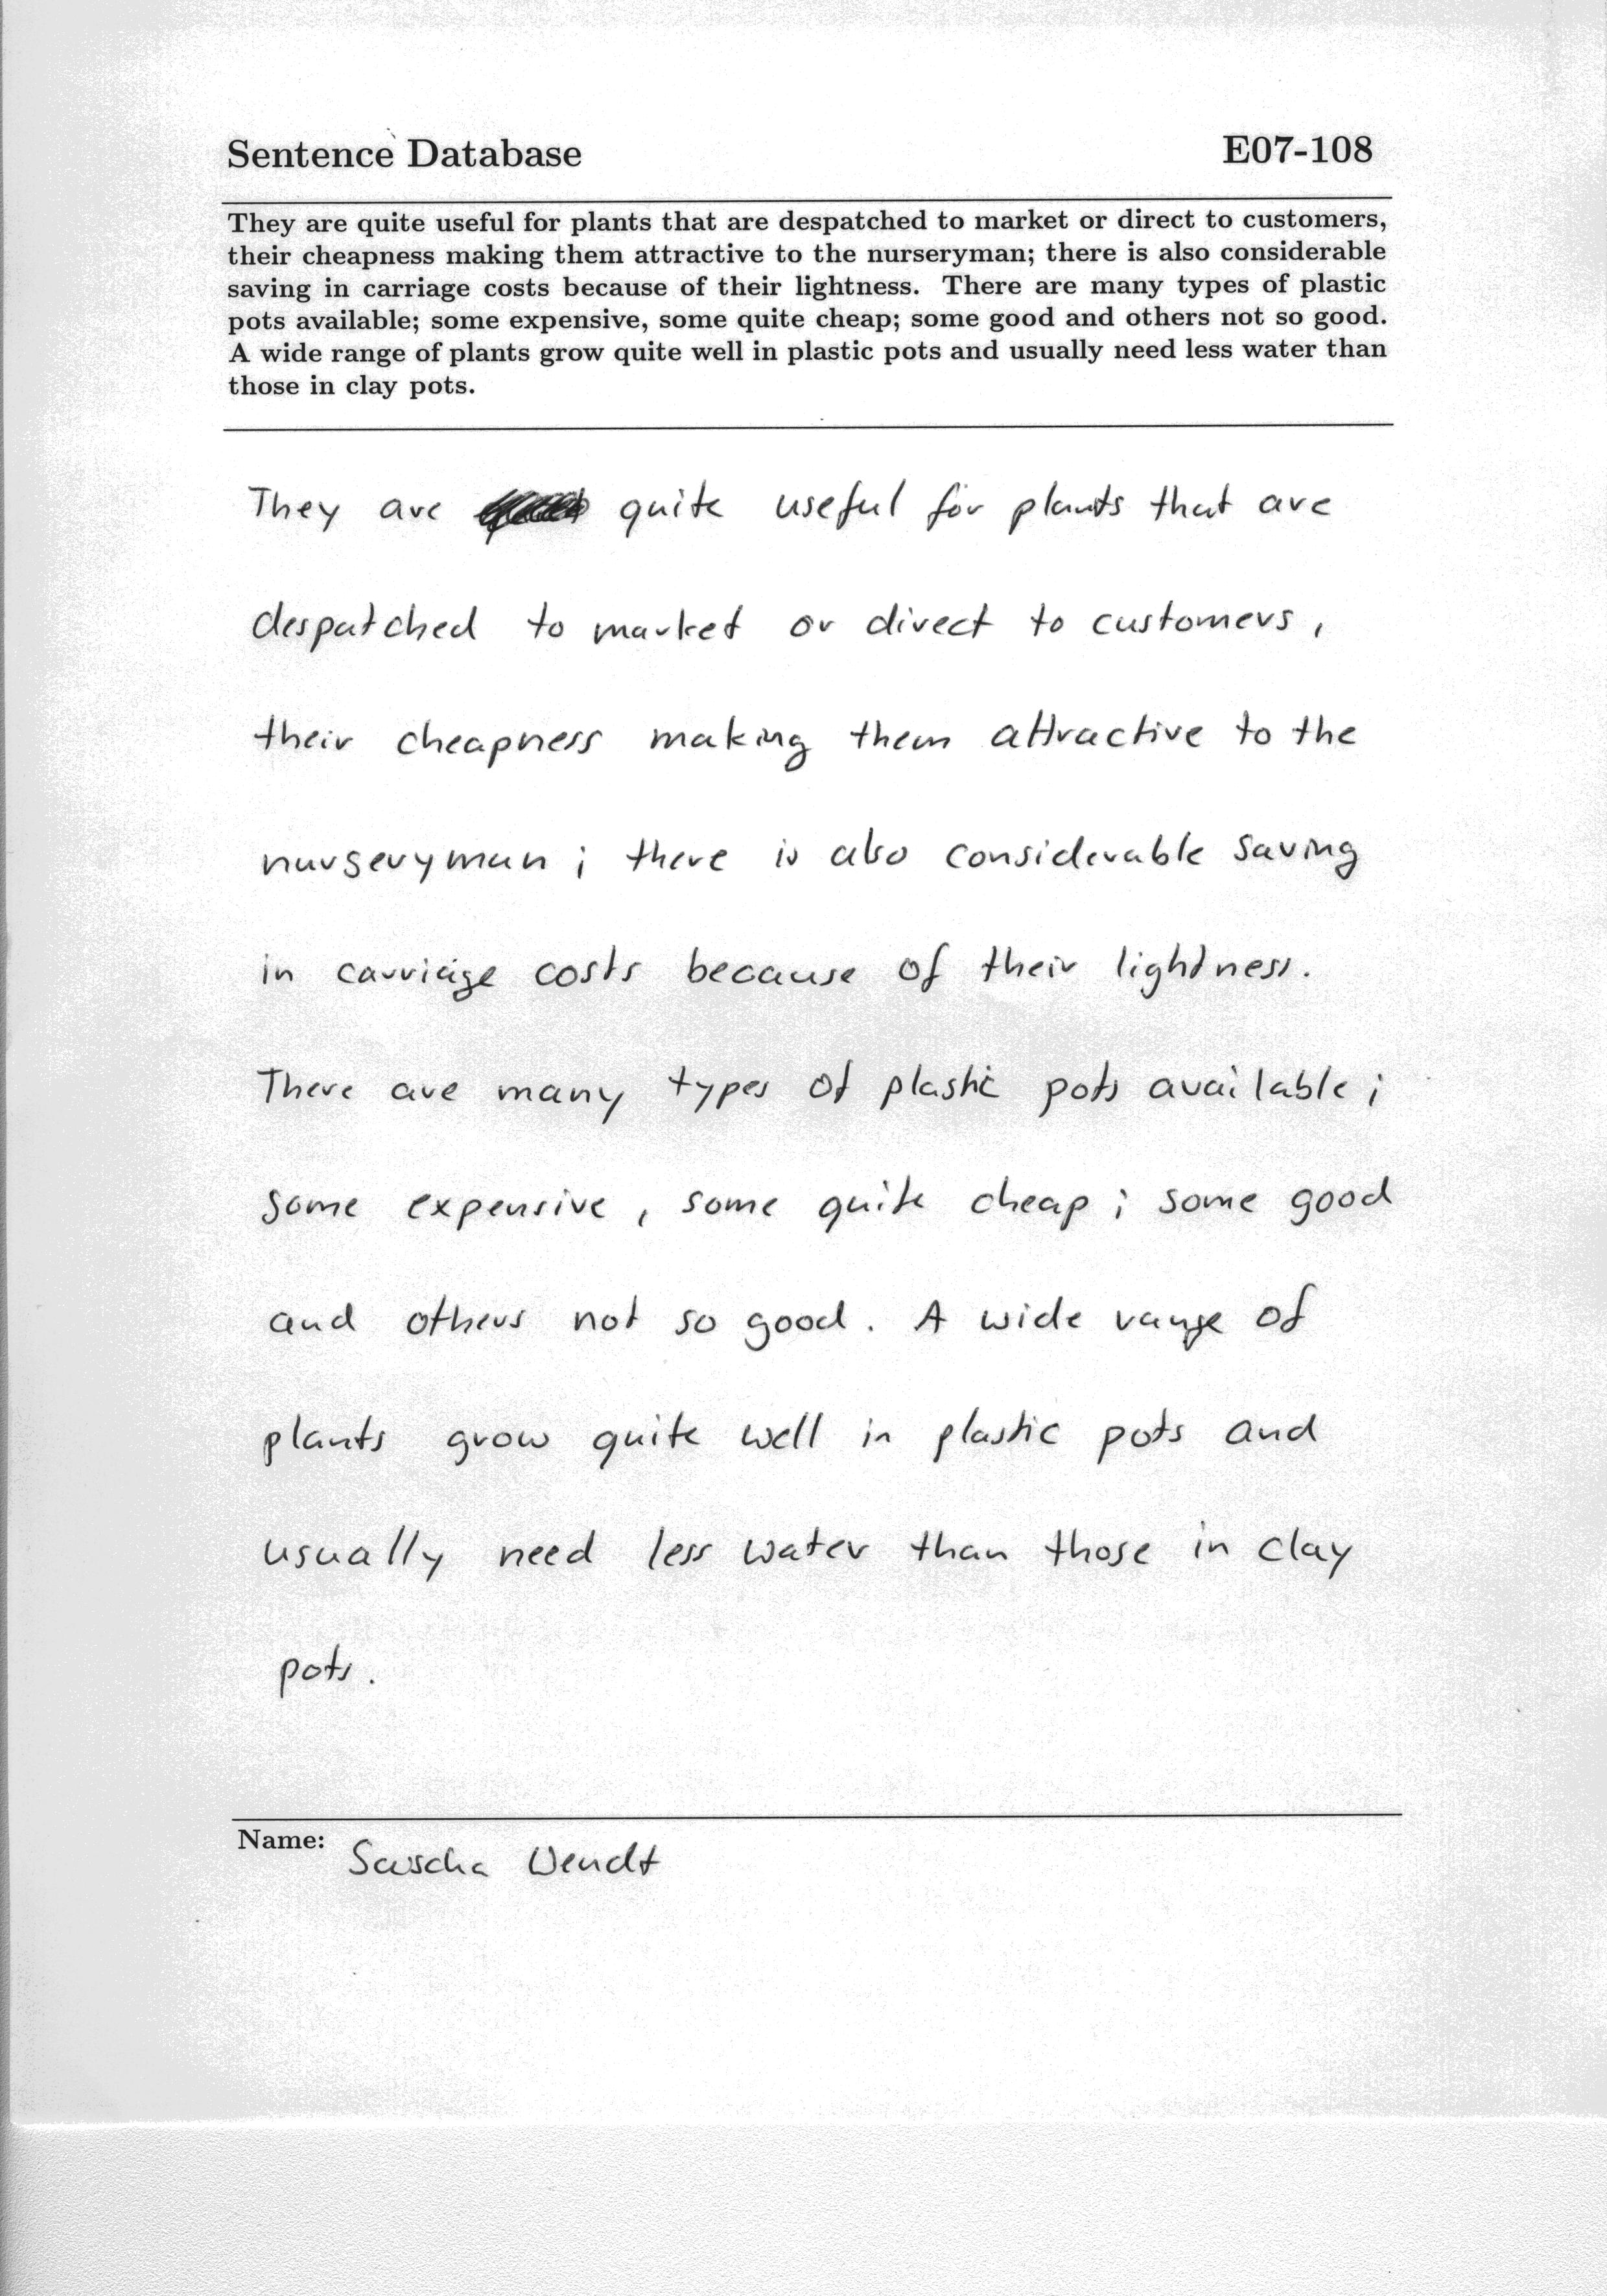 Sentence Database E07-108
They are quite useful for plants that are despatched to market or direct to customers,
their cheapness making them attractive to the nurseryman; there is also considerable
saving in carriage costs because of their lightness. There are many types of plastic
pots available; some expensive, some quite cheap; some good and others not so good.
A wide range of plants grow quite well in plastic pots and usually need less water than
those in clay pots.
They are quite useful for plants that are
despatched to market or direct to customers,
their cheapness making them attractive to the
nurseryman; there is also considerable saving
in carriage costs because of their lightness.
There are many types of plastic pots available;
some expensive, some quite cheap; some good
and others not so good. A wide range of
plants grow quite well in plastic pots and
usually need less water than those in clay
pots.
Name: Sascha Wendt